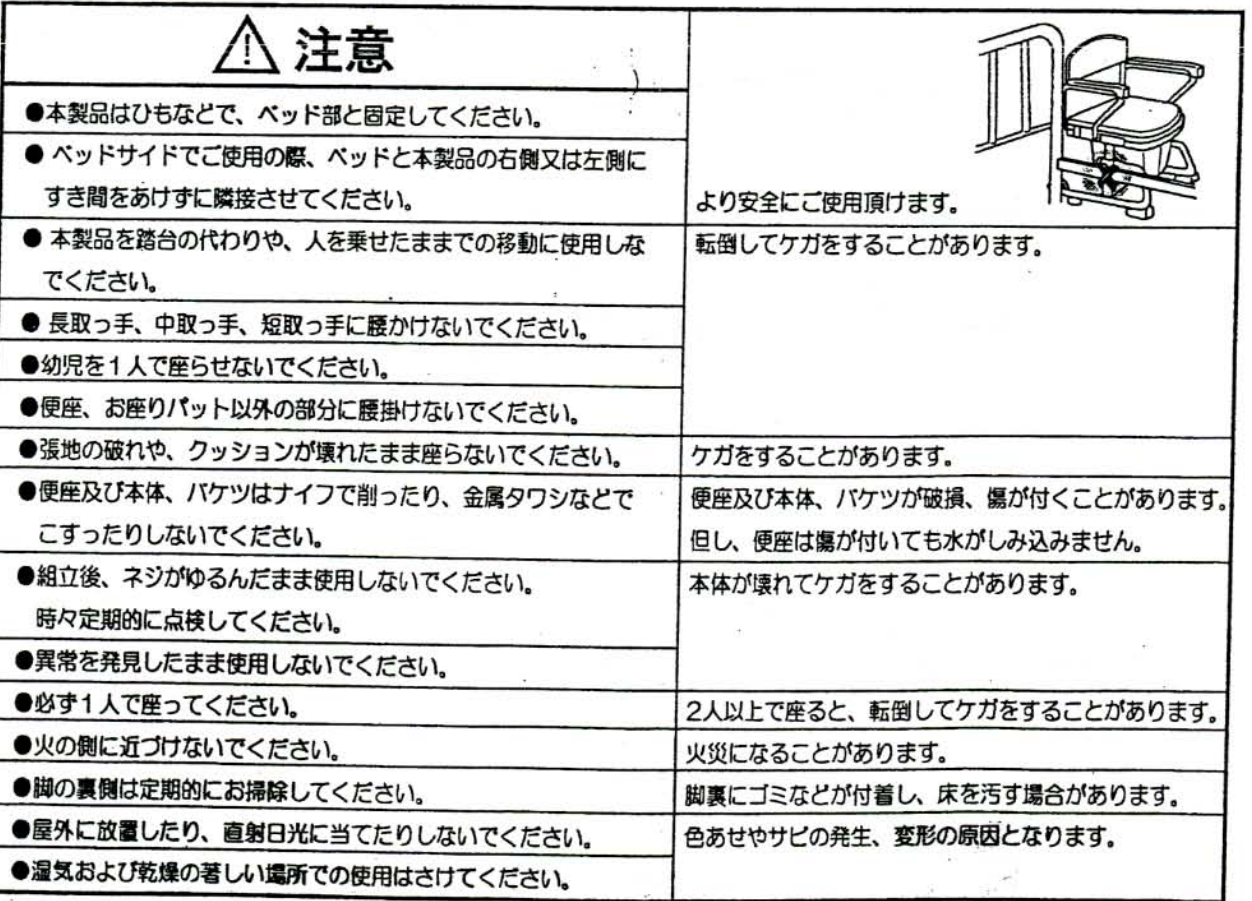 注意
●本製品はひもなどで、ベッド部と固定してください。
●ベッドサイドでご使用の際、ベッドと本製品の右側又は左側に
すき間をあけずに隣接させてください。
より安全にご使用頂けます。
●本製品を踏台の代わりや、人を乗せたままでの移動に使用しな
でください。
転倒してケガをすることがあります。
●長取っ手、中取っ手、短取っ手に腰かけないでください。
●幼児を1人で座らせないでください。
●便座、お座りパット以外の部分に腰掛けないでください。
●張地の破れや、クッションが壊れたまま座らないでください。
ケガをすることがあります。
●便座及び本体、バケツはナイフで削ったり、金属タワシなどで
こすったりしないでください。
便座及び本体、バケツが破損、傷が付くことがあります。
但し、便座は傷が付いても水がしみ込みません。
●組立後、ネジがゆるんだまま使用しないでください。
時々定期的に点検してください。
本体が壊れてケガをすることがあります。
●異常を発見したまま使用しないでください。
●必ず1人で座ってください。
2人以上で座ると、転倒してケガをすることがあります。
●火の側に近づけないでください。
火災になることがあります。
●脚の裏側は定期的にお掃除してください。
脚裏にゴミなどが付着し、床を汚す場合があります。
●屋外に放置したり、直射日光に当てたりしないでください。
色あせやサビの発生、変形の原因となります。
●湿気および乾燥の著しい場所での使用はさけてください。